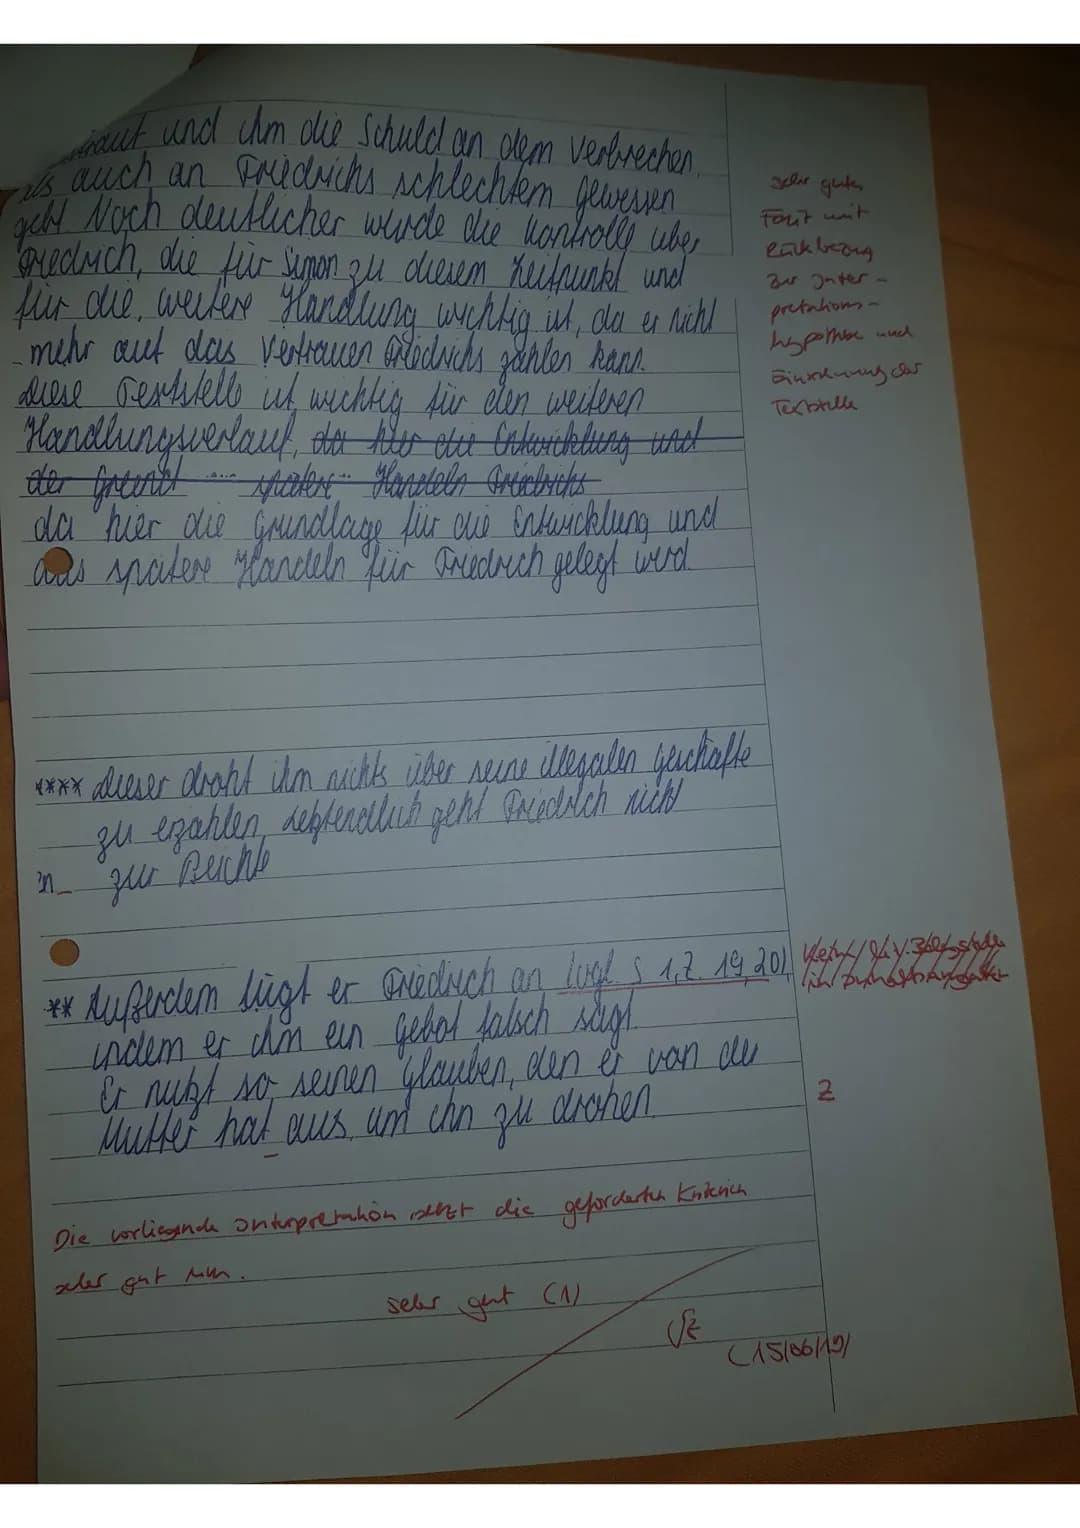 und ihm die Schuld an dem Verbrechen,
als auch an Friedrichs schlechtem gewessen
gebt Noch deutlicher wurde die Kontrolle über
Friedrich, die für Simon zu diesem Zeitpunkt und
für die weitere Handlung wichtig ist, da er nicht
mehr auf das Vertrauen Friedrichs zählen kann.
diese Textstelle ist wichtig für den weiteren
Handlungsverlauf, da hier die Entwicklung und
der spätere Handeln Friedrichs
da hier die Grundlage für die Entwicklung und
das spätere Handeln für Friedrich gelegt wird.
sehr gutes
Fazit mit
Rückbezug
zur Inter-
pretations-
hypothese und
Einordnung der
Textstelle
**** dieser droht ihm nichts über seine illegalen Geschäfte
zu erzählen, Letztendlich geht Friedrich nicht
zur Beichte
** Außerdem lügt er Friedrich an (vgl. S 1, Z. 19, 20),
indem er ihm ein Gebot falsch sagt.
Er nutzt so seinen Glauben, den er von der
Mutter hat aus, um ihn zu drohen.
Z
Die vorliegende Interpretation setzt die geforderten Kriterien
sehr gut um.
sehr gut (1)
(15/06/19)